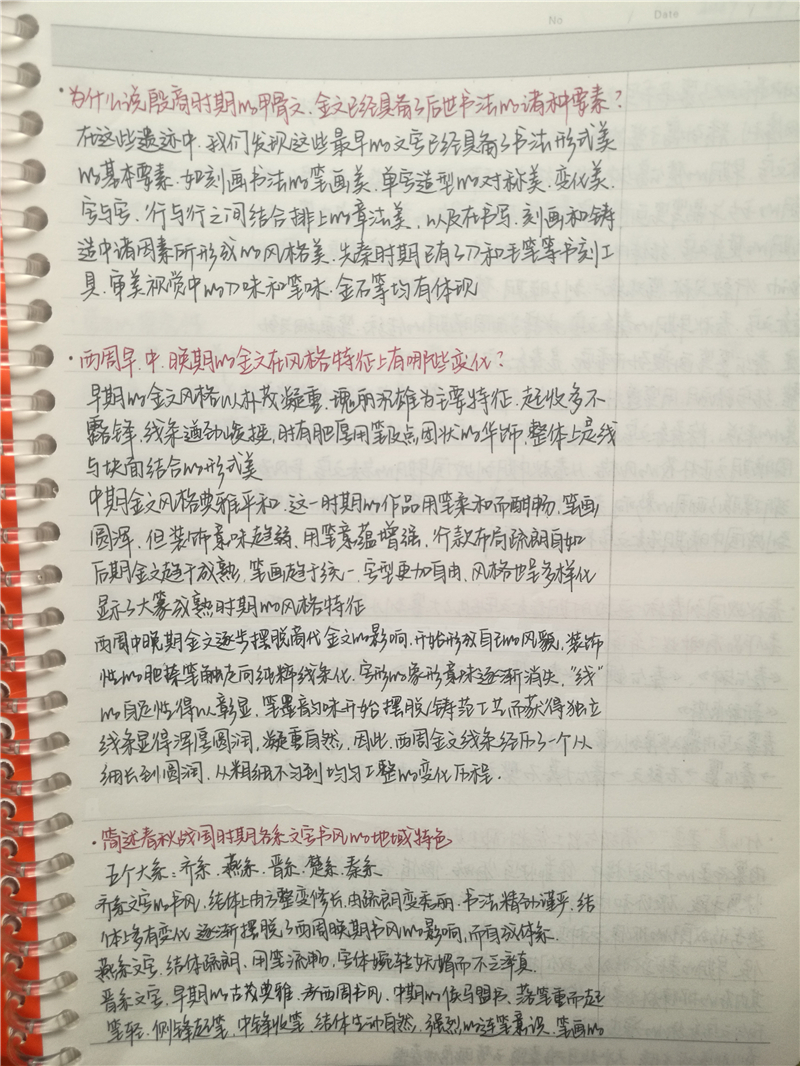 No
Date
·为什么说殷商时期的甲骨文、金文已经具备了后世书法的诸种要素？
在这些遗迹中，我们发现这些最早的文字已经具备了书法形式美
的基本要素，如刻画书法的笔画美，单字造型的对称美、变化美，
字与字、行与行之间结合排上的章法美，以及在书写、刻画和铸
造中诸因素所形成的风格美。先秦时期已有了刀和毛笔等书刻工
具，审美视觉中的刀味和笔味、金石等均有体现
·西周早、中、晚期的金文在风格特征上有哪些变化？
早期的金文风格以朴茂凝重、瑰丽沉雄为主要特征，起收多不
露锋，线条遒劲峻挺，时有肥厚用笔及点团状的华饰，整体上是线
与块面结合的形式美
中期金文风格典雅平和，这一时期的作品用笔柔和而酣畅，笔画
圆浑，但装饰意味趋弱，用笔意蕴增强，行款布局疏朗自如
后期金文趋于成熟，笔画趋于统一，字型更加自由，风格也呈多样化
显示了大篆成熟时期的风格特征
西周中晚期金文逐步摆脱商代金文的影响，开始形成自己的风貌，装饰
性的肥笔触走向纯粹线条化，字形的象形意味逐渐消失，“线”
的自足性得以彰显，笔墨韵味开始摆脱铸范工艺而获得独立
线条显得浑厚圆润，凝重自然，因此，西周金文线条经历了一个从
细长到圆润，从粗细不匀到均匀工整的变化历程．
·简述春秋战国时期各系文字书风的地域特色
五个大系：齐系、燕系、晋系、楚系、秦系
齐系文字的书风，结体上由方整变修长，由疏朗变秀丽，书法精劲谨严，结
体上多有变化，逐渐摆脱了西周晚期书风的影响，而自成体系．
燕系文字，结体疏朗，用笔流畅，字体婉转妩媚而不乏率真．
晋系文字，早期的古茂典雅，承西周书风，中期的侯马盟书，落笔重而起
笔轻，侧锋起笔，中锋收笔，结体生动自然，强烈的连笔意识，笔画的